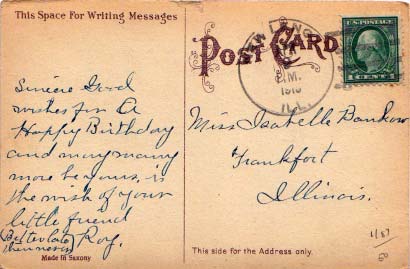 This Space For Writing Messages
Sincere Good
wishes for A
Happy Birthday
and may many
more be yours, is
the wish of your
little friend
Roy.
Made in Saxony
POST CARD
NEW LENOX
M.
ILL.
U.S. POSTAGE
1 CENT 1
Miss Isabelle Bankow
Frankfort
Illinois.
This side for the Address only.